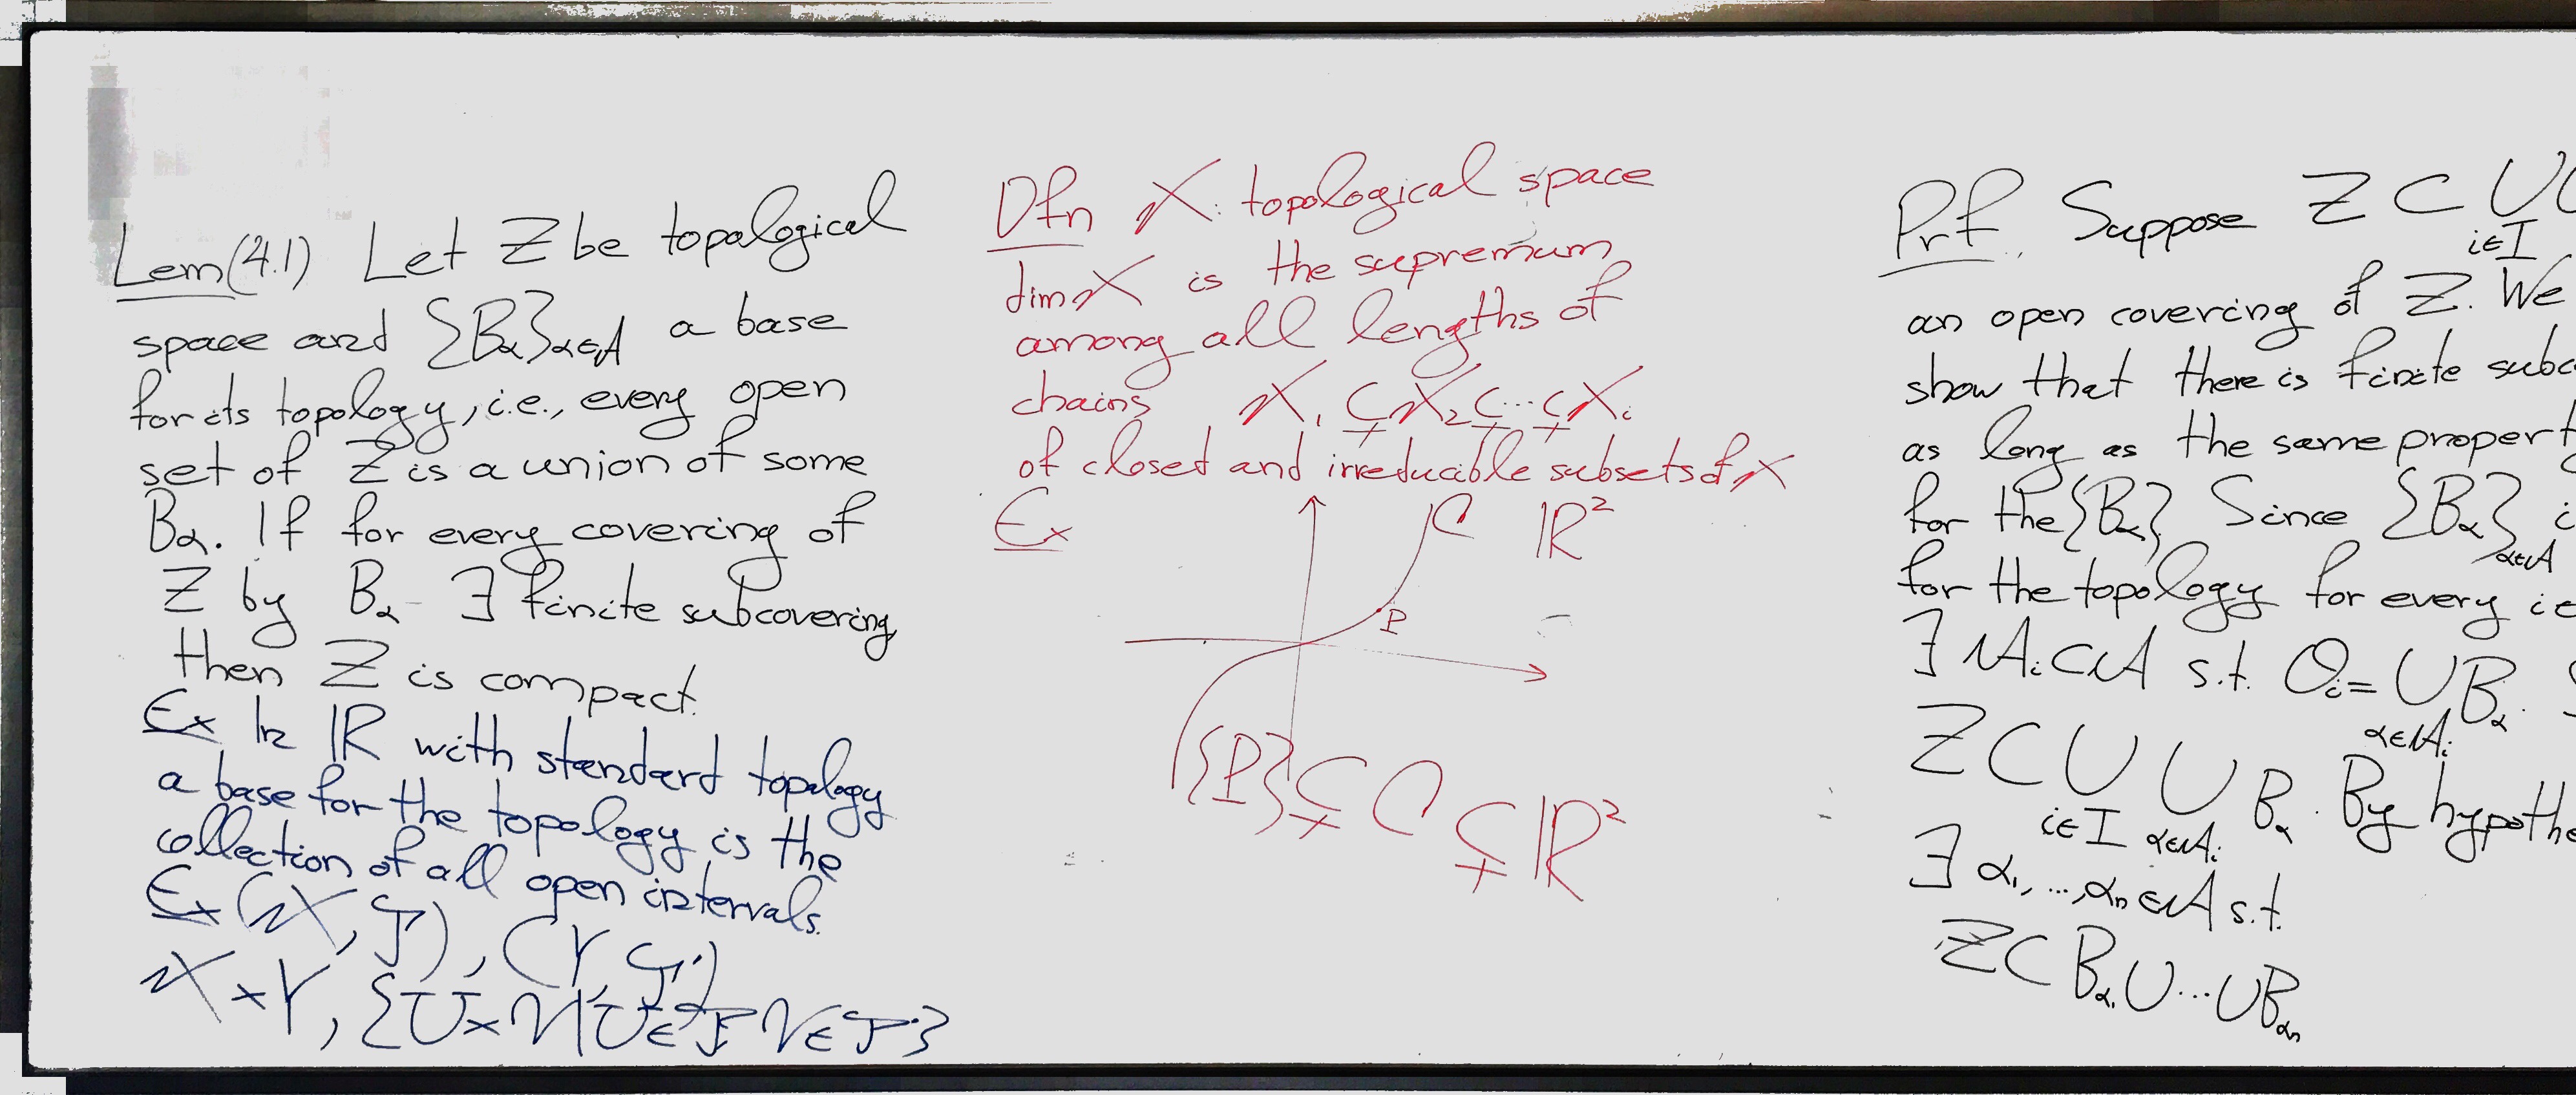 Lem(4.1) Let Z be topological
space and {Bα}α∈A a base
for its topology, i.e., every open
set of Z is a union of some
Bα. If for every covering of
Z by Bα ∃ finite subcovering,
then Z is compact.
Ex In ℝ with standard topology
a base for the topology is the
collection of all open intervals.
Ex (X, T), (Y, T')
X×Y, {U×V|U∈T V∈T'}
Dfn X: topological space
dim X is the supremum
among all lengths of
chains X₁ ⊊ X₂ ⊊ ... ⊊ Xᵢ
of closed and irreducible subsets of X
Ex C ℝ²
P
{P} ⊊ C ⊊ ℝ²
Prf. Suppose Z ⊂ ∪
i∈I
an open covering of Z. We
show that there is finite
as long as the same
for the {Bα}. Since {Bα}α∈A
for the topology for every
∃ Aᵢ ⊂ A s.t. Oᵢ = ∪ Bα.
α∈Aᵢ
Z ⊂ ∪ ∪ Bα. By
i∈I α∈Aᵢ
∃ α₁, ..., αₙ ∈ A s.t.
Z ⊂ Bα₁ ∪ ... ∪ Bαₙ